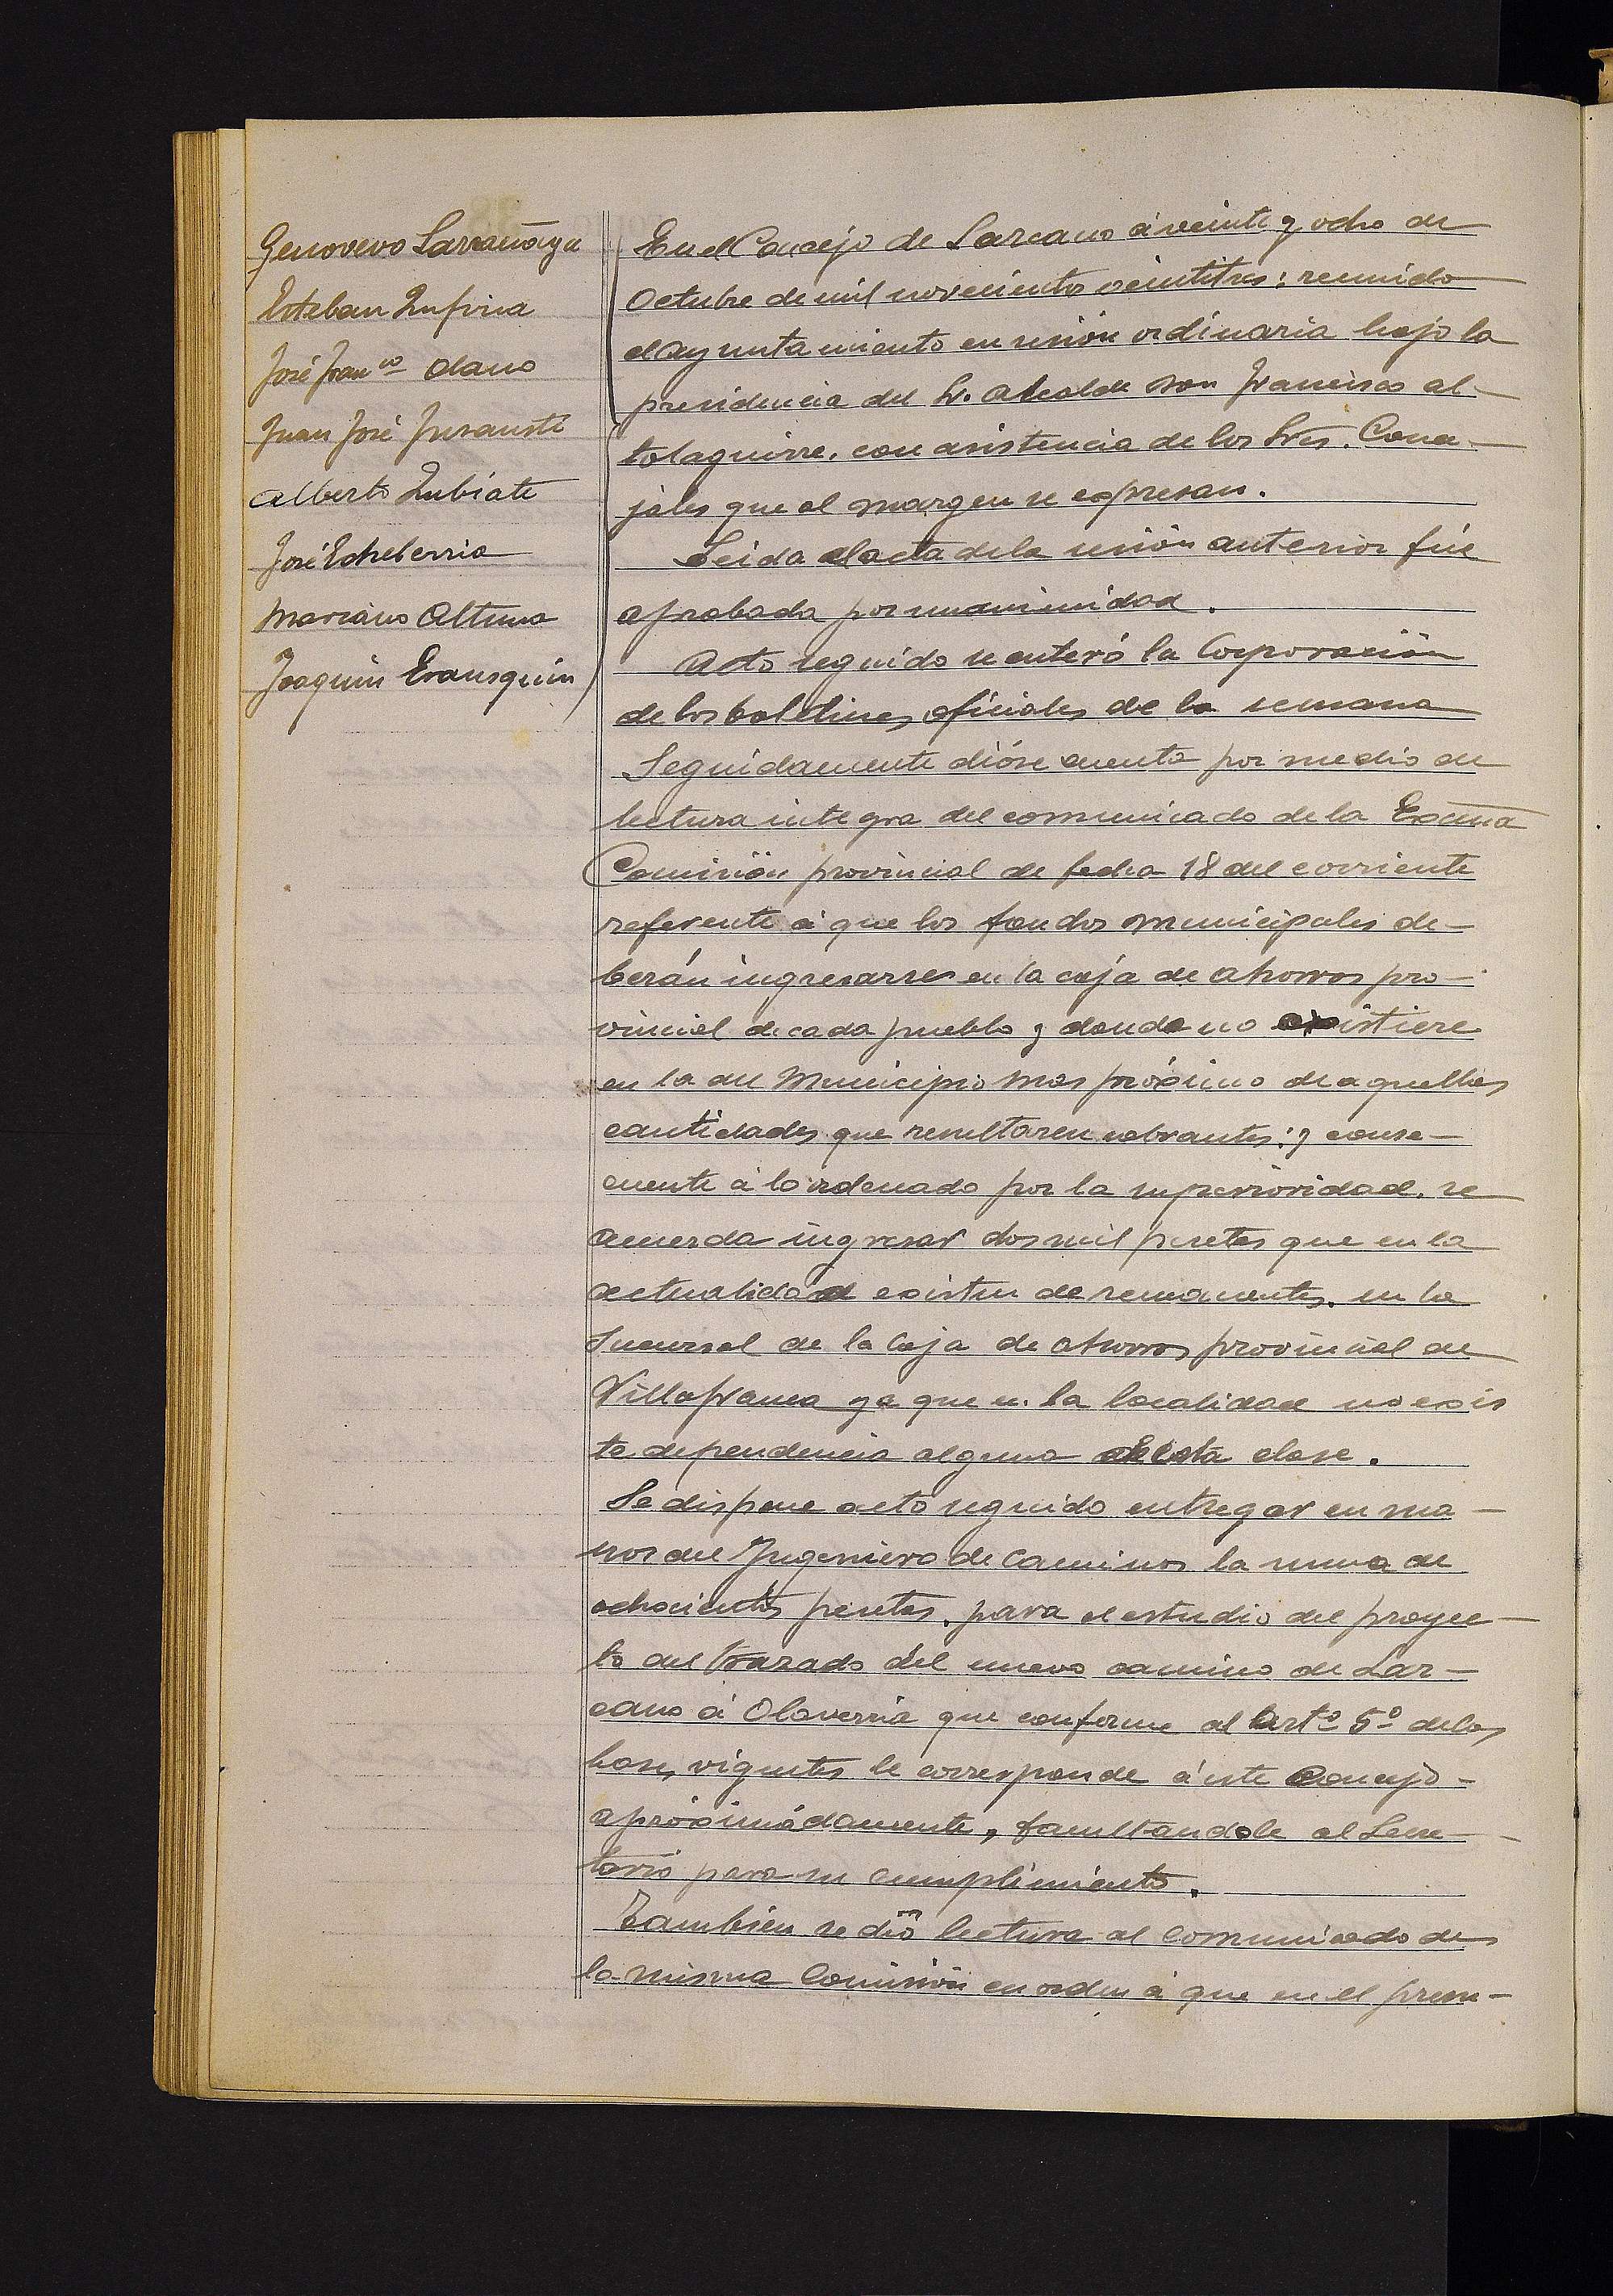 Genovevo Larrañaga
Esteban Zufiria
José Fran<sup>co</sup> Olano
Juan José Insausti
Alberto Zubiate
José Echeberria
Mariano Altuna
Joaquin Erausquin
En el Concejo de Lazcano á veinte y ocho de
Octubre de mil novecientos veintitres: reunido
el Ayuntamiento en sesión ordinaria bajo la
presidencia del Sr. Alcalde Don Francisco Al-
tolaguirre, con asistencia de los Sres. Conce-
jales que al margen se expresan.
Leida el acta de la sesión anterior fué
aprobada por unanimidad.
Acto seguido se enteró la Corporación
de los boletines oficiales de la semana
Seguidamente dióse cuenta por medio de
lectura integra del comunicado de la Excma
Comisión provincial de fecha 18 del corriente
referente á que los fondos municipales de-
berán ingresarse en la caja de ahorros pro-
vincial de cada pueblo y donde no existiere
en la del Municipio mas próximo de aquellas
cantidades que resultaren sobrantes: y conse-
cuente á lo ordenado por la superioridad, se
acuerda ingresar dos mil pesetas que en la
actualidad existen de remanentes, en la
Sucursal de la Caja de Ahorros provincial de
Villafranca ya que en la localidad no exis
te dependencia alguna de esta clase.
Se dispone acto seguido entregar en ma-
nos del Ingeniero de Caminos la suma de
ochocientas pesetas, para el estudio del proyec-
to del trazado del nuevo camino de Laz-
cano á Olaverria que conforme al Art.º 5º de las
bases vigentes le corresponde á este Concejo-
apróximádamente, facultandole al Secre-
tario para su cumplimiento.
Tambien se dió lectura al comunicado de
la misma Comisión en orden á que en el presu-